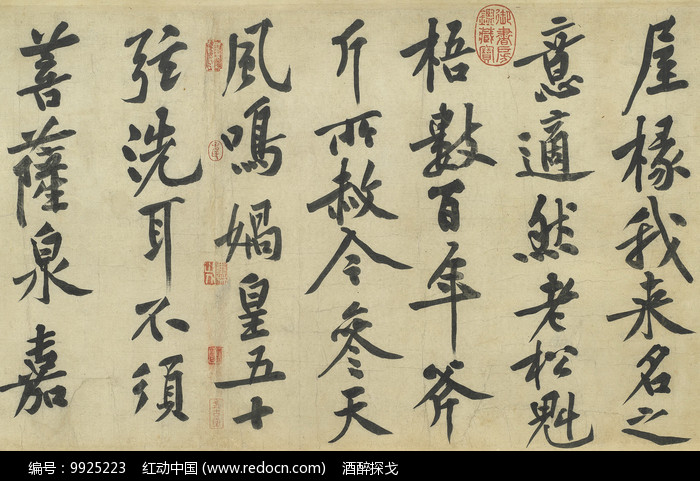 屋椽我来名之
意適然老松魁
梧數百年斧
斤所赦今參天
風鳴媧皇五十
弦洗耳不須
菩薩泉嘉
御書房鑑藏寶
编号：9925223 红动中国 (www.redocn.com) 酒醉探戈